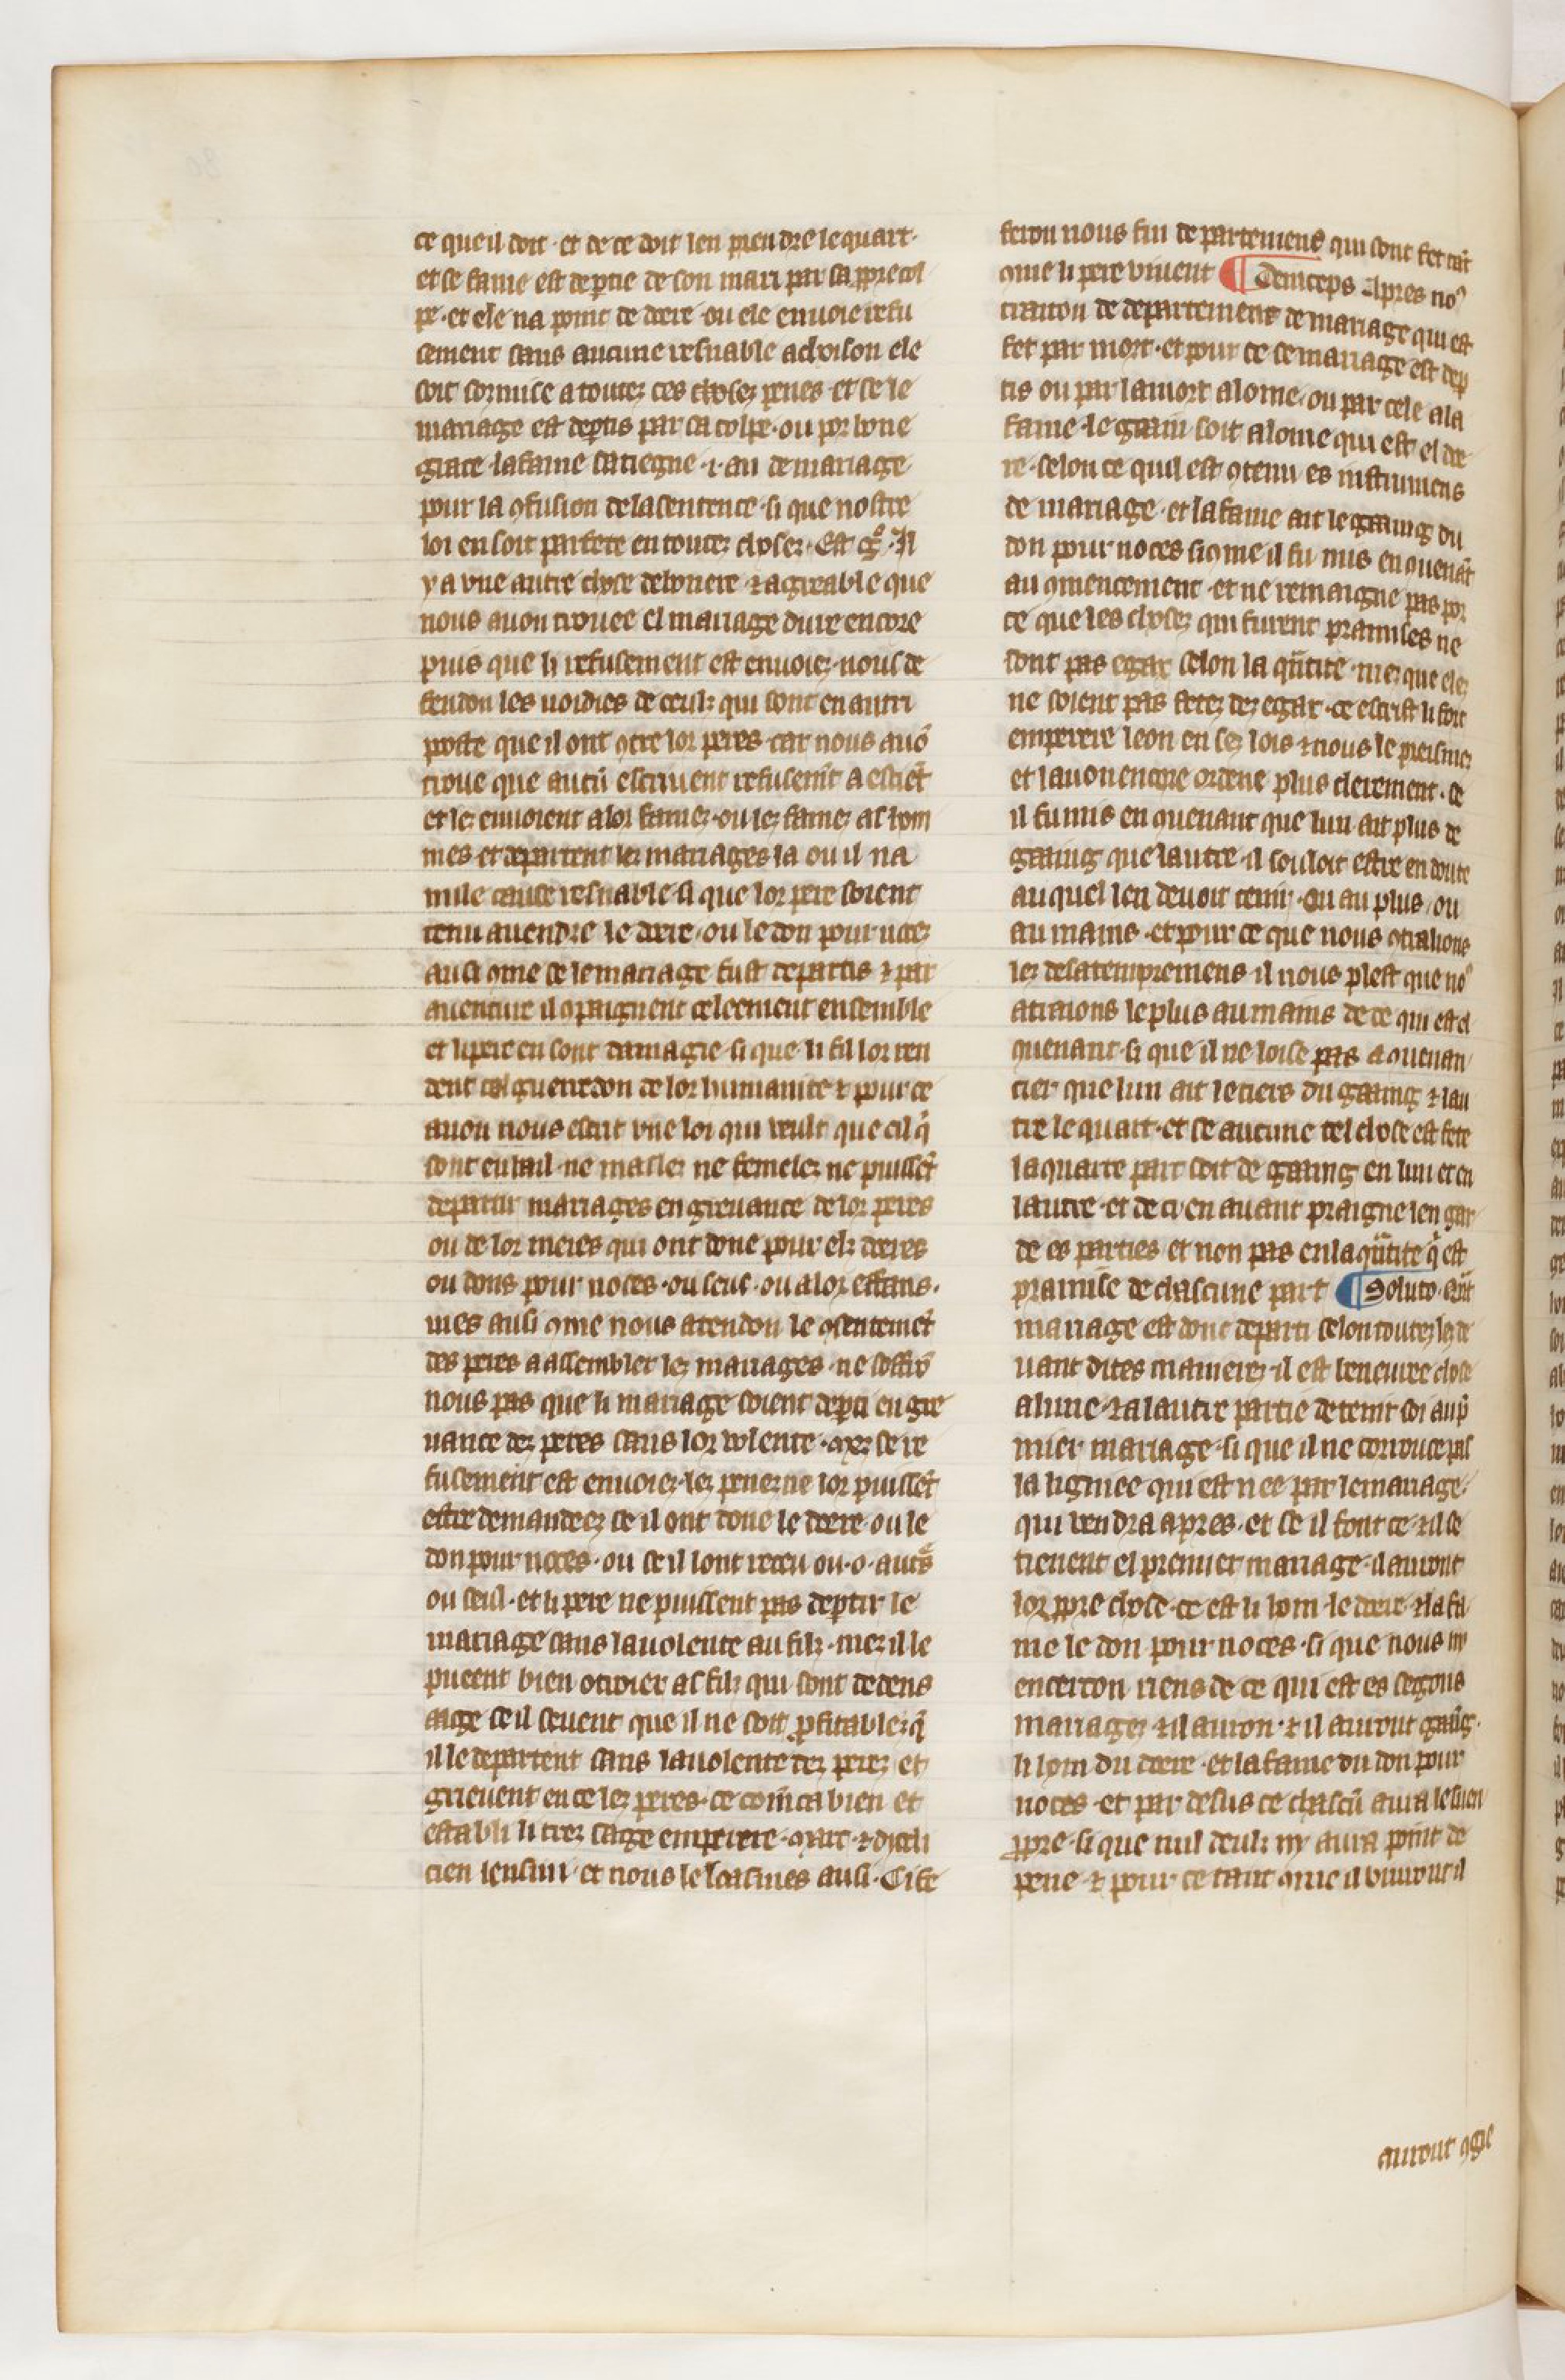 ce que il doit · et de ce doit len prendre le quart ·
et se fame est deptie de son mari par sa ppre col
pe · et ele na point de doere · ou ele enuoie refu
sement sans aucune resnable achoison ele
soit sormise a toutez ces chosez penes · et se le
mariage est deptis par sa colpe · ou por bone
grace · la fame satiegne · i · an de mariage
pour la 9fusion de la sentence · si que nostre
loi en soit parfete en toutez chosez · Il
y a vne autre chose deboniere ⁊ agreable que
nous auon trouee el mariage dure encore
puis que li refusement est enuoiez · nous de
fendon les uoidies de ceulz qui sont en autri
poste que il ont 9tre lor peres · car nous auō
troue que aucū escriuent refusemt̄ a escrēt
et lez enuoient a lor famez · ou lez famez as hom
mes et departent lez mariages la ou il na
nule cause resnable · si que lor pere soient
tenu a rendre le doere · ou le don pour nocez
ausi 9me se le mariage fust departis ⁊ par
auenture il 9paignent celeement ensemble
et li pere en sont damagie · si que li fil lor ren
dent tel guerredon de lor humanite ⁊ pour ce
auon nous escrit vne loi qui veult que cil q̄
sont en bail · ne maslez ne femelez ne puissēt
departir mariages en greuance de lor peres
ou de lor meres qui ont done pour elz doeres
ou dons pour noces · ou seus · ou a lor effans ·
mes ausi 9me nous atendon le 9sentemēt
des peres a assembler lez mariages · ne soffrō
nous pas que li mariage soient depti en gre
uance dez peres sans lor volente · mez se re
fusement est enuoiez · lez penez ne lor puissēt
estre demandeez se il ont done le doere · ou le
don pour noces · ou se il lont receu ou · o · autrē
ou seul · et li pere ne puissent pas deptir le
mariage sans la uolente au filz · mez il le
pueent bien otroier as filz qui sont dedens
aage se il seuent que il ne soit pfitablez q̄
il le departent sans la uolente dez perez et
grieuent en ce lez peres · ce comēca bien et
establi li trez sage emperere · marc · ⁊ dyocli
cien lensiui · et nous le loasmes ausi · Ci fe
feron nous fin departemens qui sont fet tāt
9me li pere viuent ¶ Deinceps Apres no⁹
traiton de departement de mariage qui est
fet par mort · et pour ce se mariage est dep
tis ou par la mort a lome · ou par cele a la
fame · le grain soit a lome qui est el doe
re · selon ce quil est 9tenu es instrumens
de mariage · et la fame ait le gaaing du
don pour noces si 9me il fu mis en 9uenāt
au 9mencement · et ne remaigne pas por
ce que les chosez qui furent pramises ne
sont pas egax selon la qūtite · mez que elez
ne soient pas fetez dez egax · ce escrist li fort
emperere leon en sez lois ⁊ nous le preismez
et lauon encore ordene plus clerement · se
il fu mis en 9uenant que lun ait plus de
gaaing que lautre · il souloit estre en doute
au quel len deuoit tenir · ou au plus / ou
au mains · et pour ce que nous 9traiions
lez desatempremens il nous plest que no⁹
atraions le plus au mains de ce qui est el
9uenant · si que il ne loise pas a 9uenan
cier que lun ait le tiers du gaaing ⁊ lau
tre le quart · et se aucune tel chose est fete
la quarte part soit de gaaing en lun et en
lautre · et de ci en auant praigne len gar
de es parties et non pas en la qūtite q̄ est
pramise de chascune part ¶ Soluto · Qūt
mariage est donc departi selon toutez lez de
uant dites manierez · il est beneuree chose
a lune ⁊ a lautre partie de tenir soi au p̄
mier mariage · si que il ne corrouce pas
la ligniee qui est nee par le mariage /
qui vendra apres · et se il font ce · ⁊ il se
tienent el premier mariage · il auront
lor ppre chose · ce est li hom · le doere · ⁊ la fa
me le don pour noces · si que nous ni
encerron riens de ce qui est es segons
mariagez ⁊ il auron · ⁊ il auront gaāig ·
li hom du doere · et la fame du don pour
noces · et par desus ce chascū aura le suen
ppre · si que nul deulz ny aura point de
pene · ⁊ pour ce tant 9me il viuront il
auront 9gie